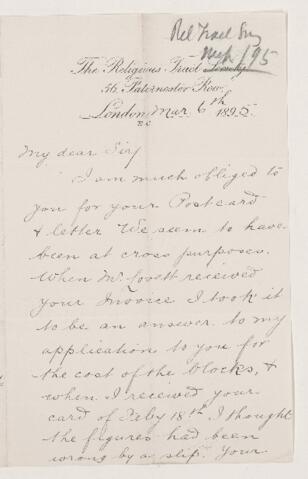 Rel Tract Soc
Mch /95
The Religious Tract Society
56, Paternoster Row,
London, Mar 6th 1895
E.C.
My dear Sir/
I am much obliged to
you for your Postcard
& letter We seem to have
been at cross purposes.
When Mr. Lovett received
your Invoice I took it
to be an answer to my
application to you for
the cost of the blocks, &
when I received your
card of Feby 18th, I thought
the figures had been
wrong by a slip. Your